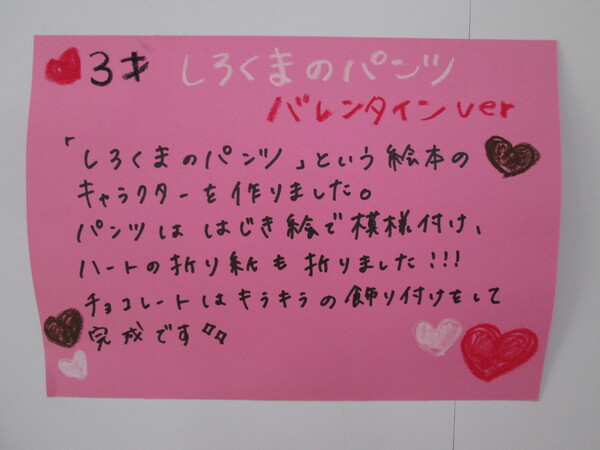 3才 しろくまのパンツ
バレンタインver
「しろくまのパンツ」という絵本の
キャラクターを作りました。
パンツははじき絵で模様付け、
ハートの折り紙も折りました!!!
チョコレートはキラキラの飾り付けをして
完成です